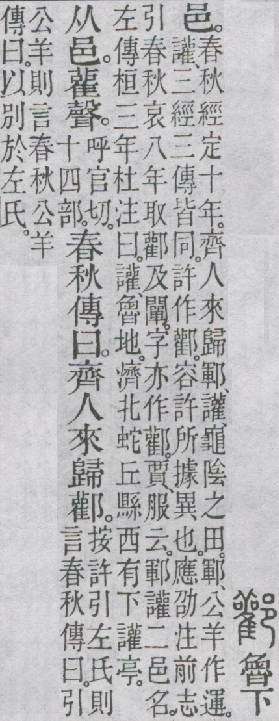 酄 魯下
邑。春秋經定十年。齊人來歸鄆、讙、龜陰之田。鄆、公羊作運。
讙三經三傳皆同。許作酄。容許所據異也。應劭注前志
引春秋哀八年取酄及闡。字亦作酄。賈、服云。鄆讙二邑名。
左傳桓三年杜注曰。讙魯地。濟北蛇丘縣西有下讙亭。
从邑雚聲。呼官切。十四部。春秋傳曰。齊人來歸酄。按許引左氏則言春秋傳曰。引
公羊則言春秋公羊
傳曰。以別於左氏。